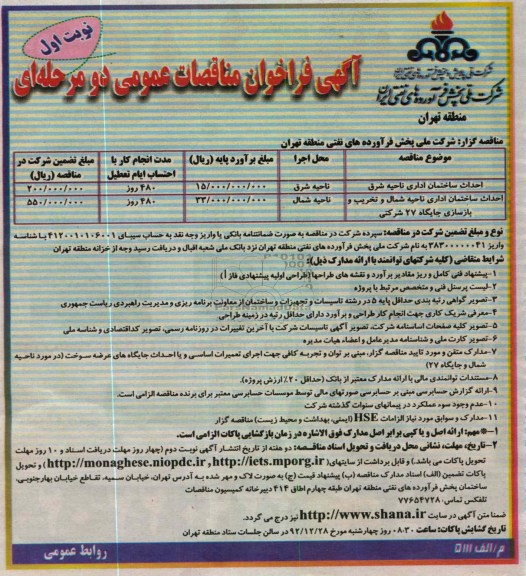 نوبت اول
آگهی فراخوان مناقصات عمومی دو مرحله‌ای
شرکت ملی پخش فرآورده های نفتی ایران
منطقه تهران
مناقصه گزار: شرکت ملی پخش فرآورده های نفتی منطقه تهران
موضوع مناقصه
محل اجرا
مبلغ برآورد پایه (ریال)
مدت انجام کار با احتساب ایام تعطیل
مبلغ تضمین شرکت در مناقصه (ریال)
احداث ساختمان اداری ناحیه شرق
ناحیه شرق
۱۵/۰۰۰/۰۰۰/۰۰۰
۴۸۰ روز
۲۰۰/۰۰۰/۰۰۰
احداث ساختمان اداری ناحیه شمال و تخریب و بازسازی جایگاه ۲۷ شرکتی
ناحیه شمال
۳۳/۰۰۰/۰۰۰/۰۰۰
۴۸۰ روز
۵۵۰/۰۰۰/۰۰۰
نوع و مبلغ تضمین شرکت در مناقصه: سپرده شرکت در مناقصه به صورت ضمانتنامه بانکی یا واریز وجه نقد به حساب سیبای ۴۱۲۰۰۱۰۱۰۶۰۰۱ با شناسه
واریز ۲۸۳۰۰۰۰۰۰۴۱ به نام شرکت ملی پخش فرآورده های نفتی منطقه تهران نزد بانک ملی شعبه اقبال و دریافت رسید وجه از خزانه منطقه تهران
شرایط متقاضی (کلیه شرکتهای توانمند با ارائه مدارک ذیل):
۱-پیشنهاد فنی کامل و ریز مقادیر برآورد و نقشه های طراحها (طراحی اولیه پیشنهادی فاز ۱)
۲-لیست پرسنل فنی و متخصص مرتبط با پروژه
۳-تصویر گواهی رتبه بندی حداقل پایه ۵ در رشته تاسیسات و تجهیزات و ساختمان از معاونت برنامه ریزی و مدیریت راهبردی ریاست جمهوری
۴-معرفی شریک کاری جهت انجام کار طراحی و برآورد دارای حداقل رتبه در زمینه طراحی
۵-تصویر کلیه صفحات اساسنامه شرکت، تصویر آگهی تاسیسات شرکت با آخرین تغییرات در روزنامه رسمی، تصویر کد اقتصادی و شناسه ملی
۶-تصویر کارت ملی و شناسنامه مدیرعامل و اعضاء هیات مدیره
۷-مدارک متقن و مورد تایید مناقصه گزار، مبنی بر توان و تجربه کافی جهت اجرای تعمیرات اساسی و یا احداث جایگاه های عرضه سوخت (در مورد ناحیه
شمال و جایگاه ۲۷)
۸-مستندات توانمندی مالی با ارائه مدارک معتبر از بانک (حداقل ۲۰٪ ارزش پروژه).
۹-ارائه گزارش حسابرسی مبنی بر حسابرسی صورتهای مالی توسط موسسات حسابرسی معتبر برای برنده مناقصه الزامی است.
۱۰-عدم وجود سوء عملکرد در پیمانهای سنوات گذشته شرکت
۱۱-مدارک و سوابق مورد نیاز الزامات HSE (ایمنی، بهداشت و محیط زیست) مناقصه گزار
۱-مهم: ارائه اصل و یا کپی برابر اصل مدارک فوق الاشاره در زمان بازگشایی پاکات الزامی است.
۲-تاریخ، مهلت، نشانی محل دریافت و تحویل اسناد مناقصه: دو هفته از تاریخ انتشار آگهی نوبت دوم (چهار روز مهلت دریافت اسناد و ۱۰ روز مهلت
تحویل پاکات می باشد.) و قابل برداشت از سایتهای (http://monaghese.niopdc.ir , http://iets.mporg.ir) و تحویل
پاکات تضمین (الف) اسناد مدارک مناقصه (ب) پیشنهاد قیمت (ج) به صورت لاک و مهر شده به آدرس تهران، خیابان سمیه، تقاطع خیابان بهارجنوبی،
ساختمان پخش فرآورده های نفتی منطقه تهران طبقه چهارم اطاق ۴۱۴ دبیرخانه کمیسیون مناقصات
تلفکس تماس: ۷۷۶۵۴۷۲۸
ضمنا متن آگهی در سایت http://www.shana.ir نیز درج می گردد.
تاریخ گشایش پاکات: ساعت ۰۸:۳۰ روز چهارشنبه مورخ ۹۲/۱۲/۲۸ در سالن جلسات ستاد منطقه تهران
روابط عمومی
م/الف ۵۱۱۱